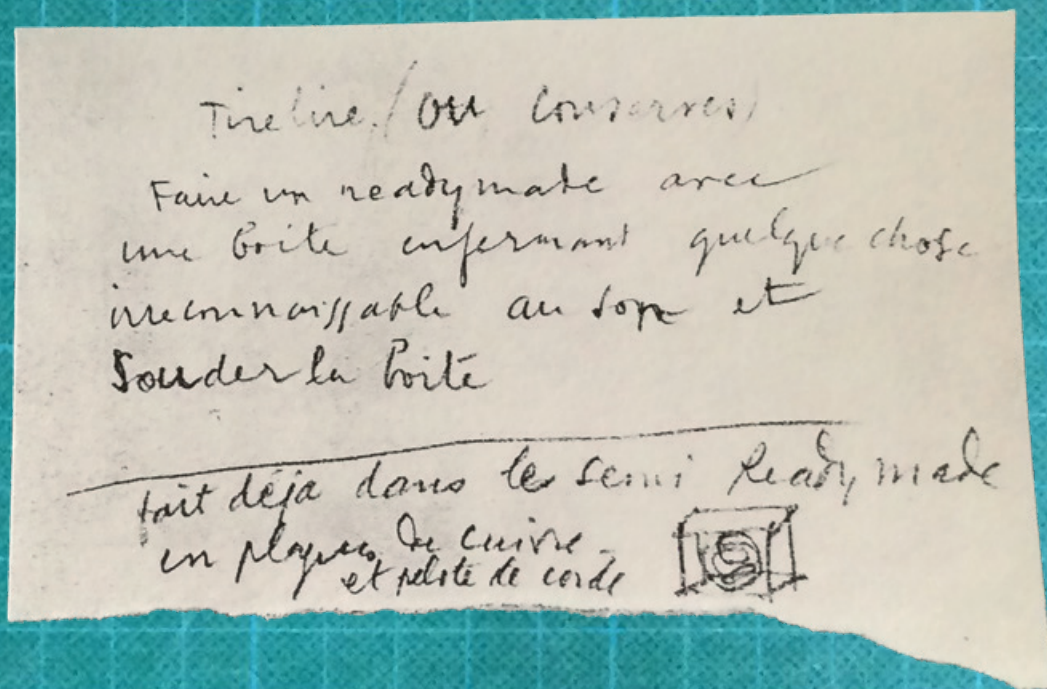 Tirelire (ou conserves)
Faire un readymade avec
une boite enfermant quelque chose
irreconnaissable au son et
Souder la boite
fait déja dans le semi Readymade
en plaques de cuivre
et pelote de corde